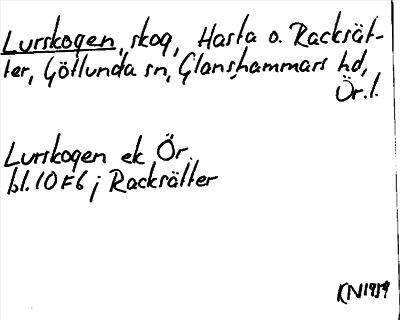 Lurskogen, skog, Hasta o. Racksät-
ter, Götlunda sn, Glanshammars hd,
Ör. l.
Lurskogen ek Ör.
bl. 10F6 j Racksätter
KN1959